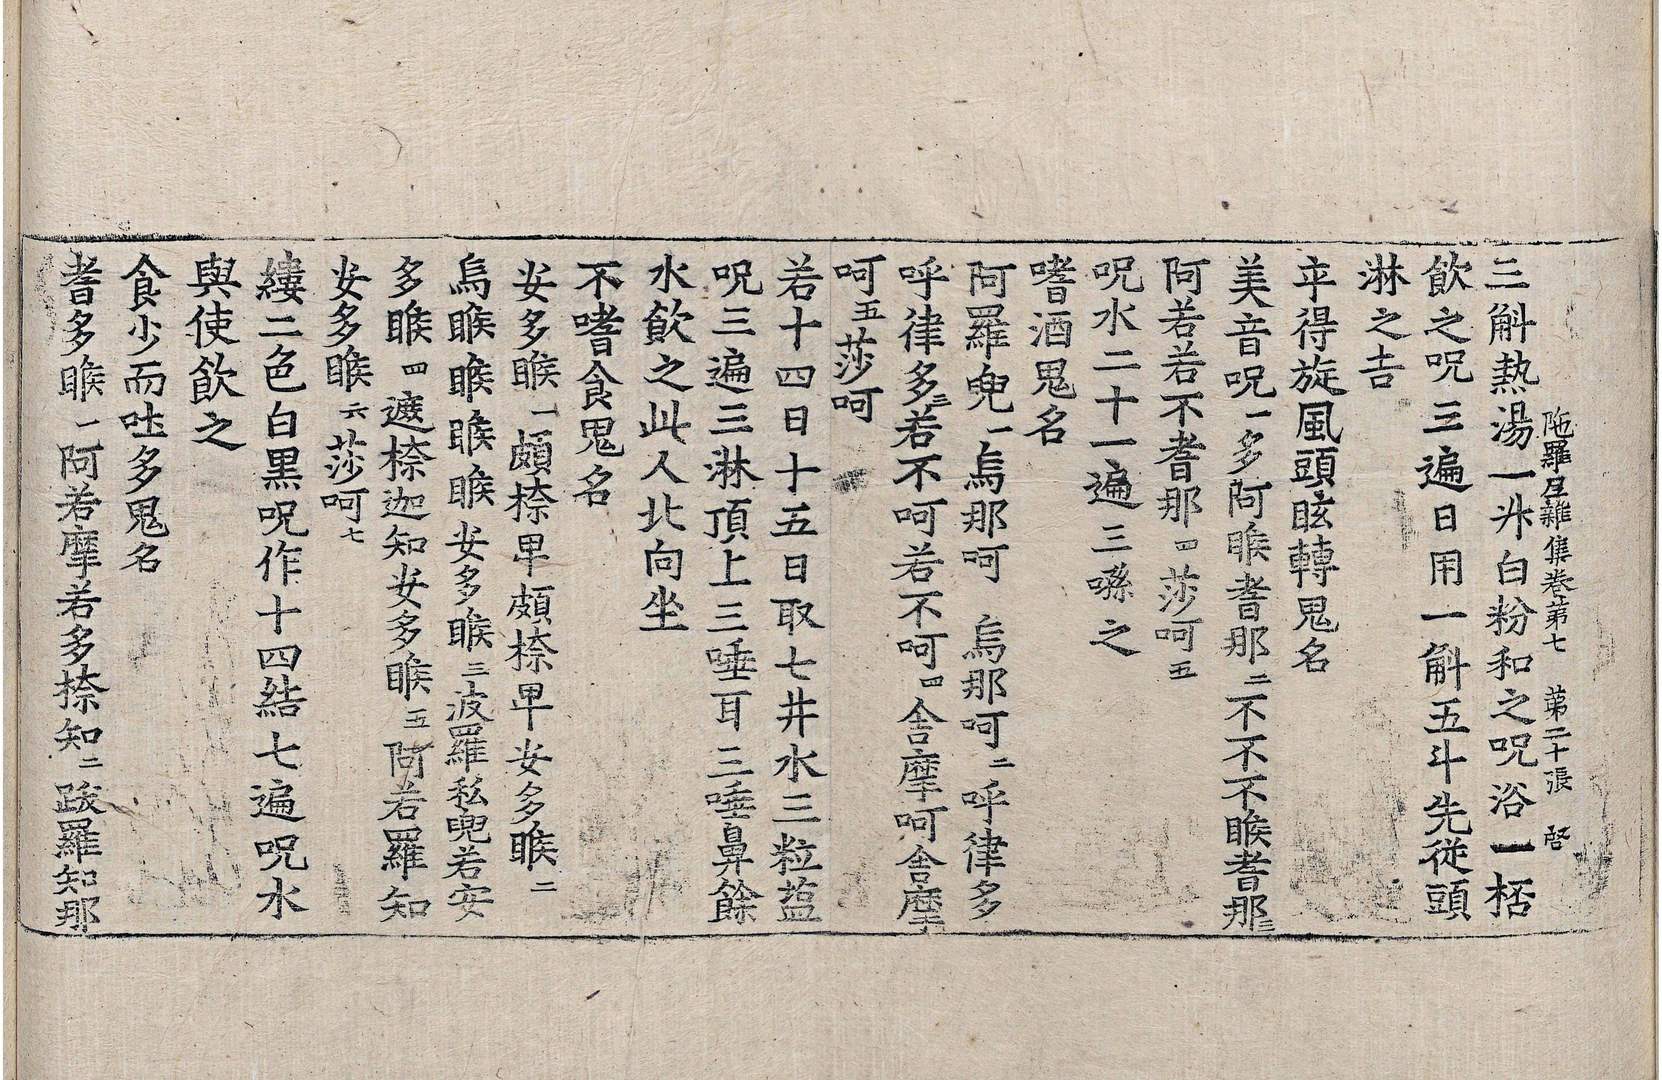 陁羅尼雜集卷第七 第二十張 啓
三斛熱湯一升白粉和之呪浴一桮
飲之呪三遍日用一斛五斗先從頭
淋之吉
卒得旋風頭眩轉鬼名
美音呪一多阿睺耆那二不不不睺耆那三
阿若若不耆那四莎呵五
呪水二十一遍三噀之
嗜酒鬼名
阿羅兜一烏那呵 烏那呵二呼律多
呼律多三若不呵若不呵四舍摩呵舍摩
呵五莎呵
若十四日十五日取七井水三粒薀
呪三遍三淋頂上三唾耳三唾鼻餘
水飲之此人北向坐
不嗜食鬼名
安多睺一頗㮈卑頗㮈卑安多睺二
烏睺睺睺睺安多睺三波羅私兜若安
多睺四遮㮈迦知安多睺五阿若羅知
安多睺六莎呵七
縷二色白黑呪作十四結七遍呪水
與使飲之
食少而吐多鬼名
耆多睺一阿若摩若多㮈知二跋羅知那